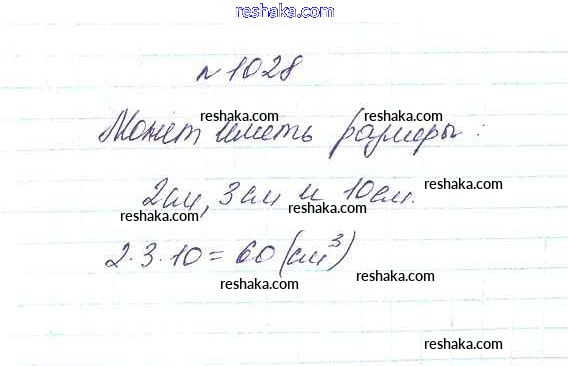 reshaka.com
№ 1028
reshaka.com
reshaka.com
Может иметь размеры:
reshaka.com
reshaka.com
2см, 3см и 10см.
reshaka.com
reshaka.com
2·3·10=60 (см³)
reshaka.com
reshaka.com
reshaka.com